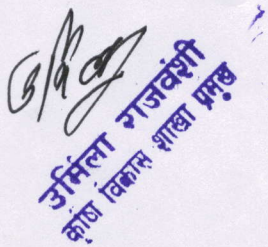 उर्मिला राजवंशी
कृषि विकास शाखा प्रमुख